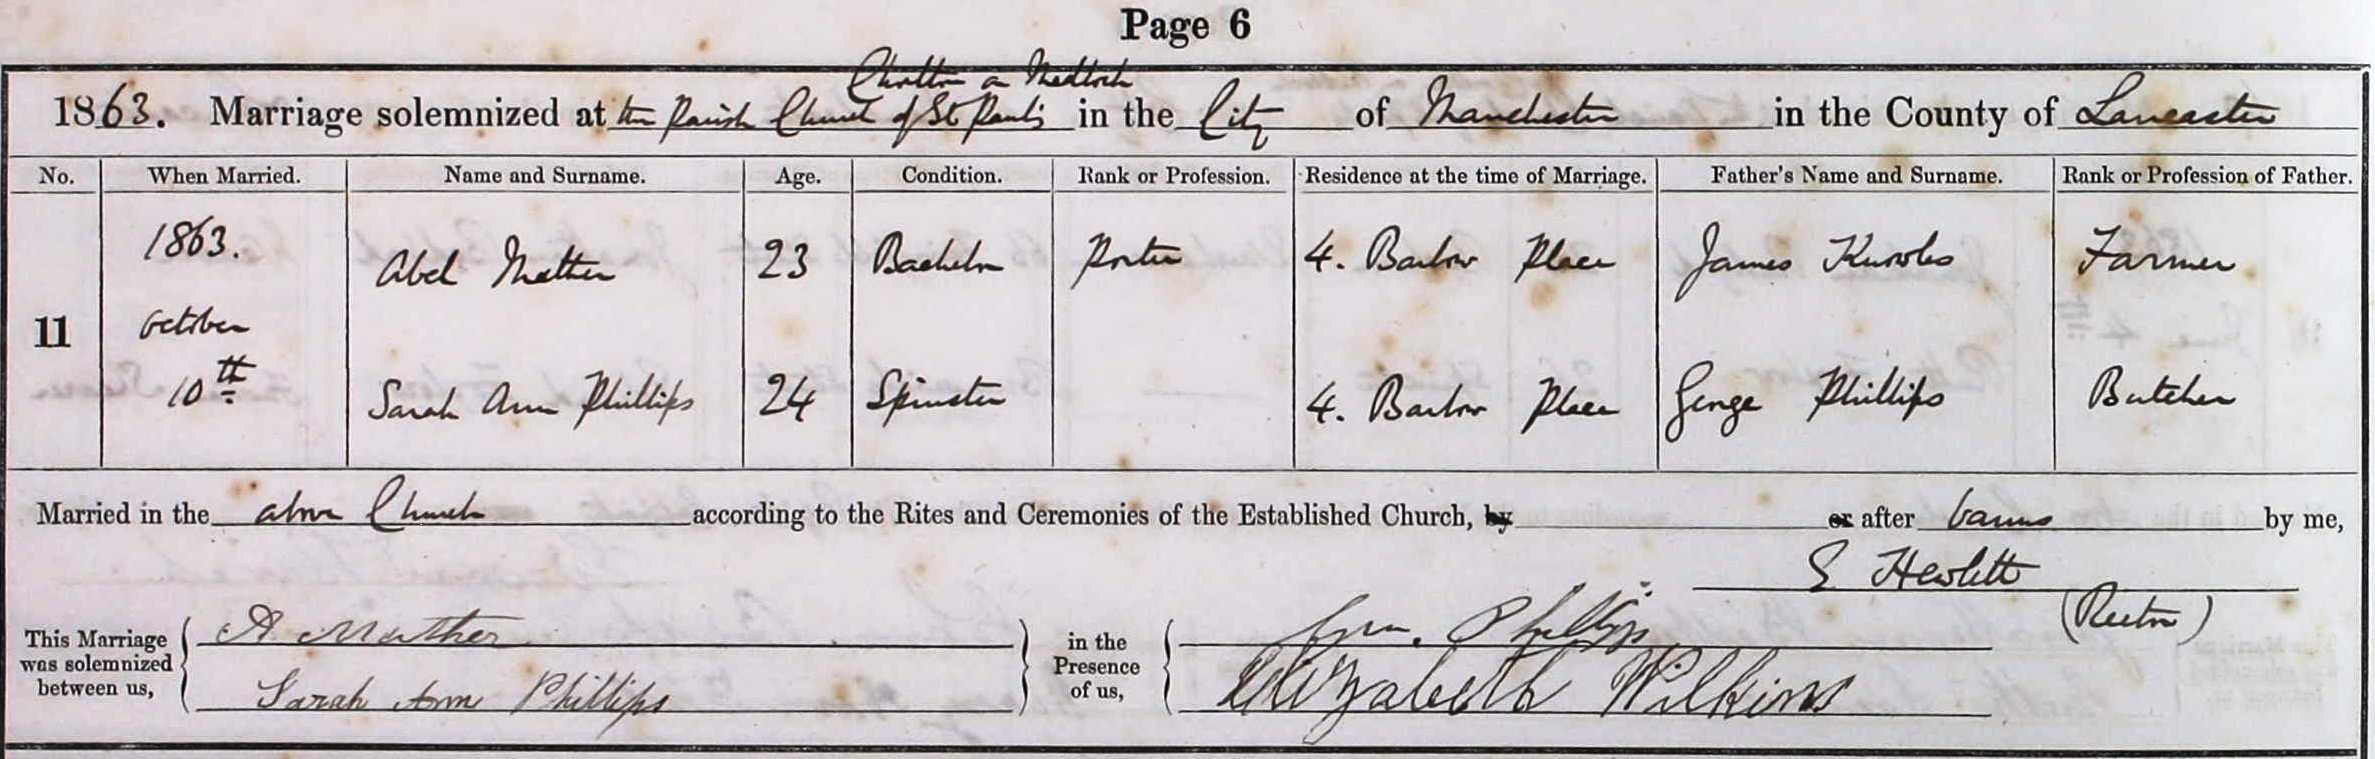 Page 6
Chorlton on Medlock
1863. Marriage solemnized at the Parish Church of St Paul's in the City of Manchester in the County of Lancaster
No. When Married. Name and Surname. Age. Condition. Rank or Profession. Residence at the time of Marriage. Father's Name and Surname. Rank or Profession of Father.
1863. Abel Mather 23 Bachelor Porter 4. Barlow Place James Knowles Farmer
11 October
10th Sarah Ann Phillips 24 Spinster 4. Barlow Place George Phillips Butcher
Married in the above Church according to the Rites and Ceremonies of the Established Church, by or after banns by me,
Hewlett
(Rector)
This Marriage was solemnized between us,
A Mather
Sarah Ann Phillips
in the Presence of us,
Phillips
Elizabeth Wilkins